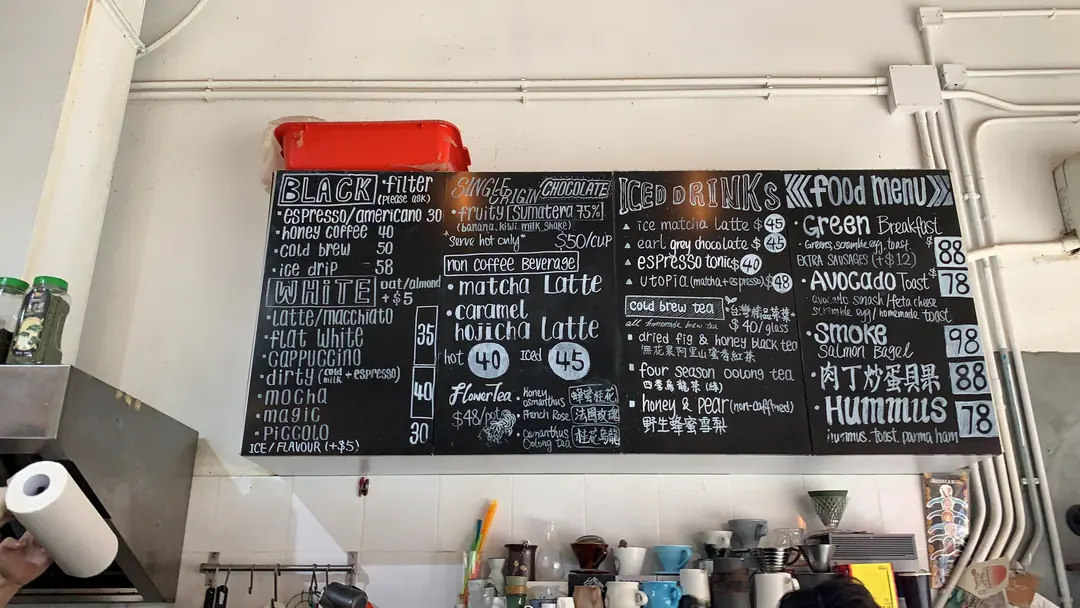 BLACK • filter
(please ask)
• espresso/americano 30
• honey coffee 40
• cold brew 50
• ice drip 58
WHITE oat/almond
+$5
• latte/macchiato
• flat white
• cappuccino
35
• dirty (cold milk + espresso)
• mocha
• magic
40
• piccolo 30
ICE/FLAVOUR (+$5)
SINGLE ORIGIN CHOCOLATE
• fruity Sumatera 75%
(banana, kiwi, milk shake)
*serve hot only* $50/cup
non coffee Beverage
• matcha Latte
• caramel
hojicha Latte
hot 40 Iced 45
flowerTea
$48/pot
• Honey osmanthus 蜂蜜桂花
• French Rose 法國玫瑰
• Osmanthus Oolong tea 桂花烏龍
ICED DRINKS
▲ ice matcha latte $45
▲ earl grey chocolate $45
▲ espresso tonic $40
▲ utopia (matcha+espresso) $48
cold brew tea
all homemade brew tea $40/glass
dried fig & honey black tea
無花果阿里山蜜香紅茶
four season oolong tea
四季烏龍茶(綠)
honey & pear (non-caffined)
野生蜂蜜雪梨
food menu
• Green Breakfast
• Greens, scramble egg, toast
EXTRA SAUSAGES (+$12)
$88
• AVOCADO Toast $78
avocado smash/feta cheese
scramble egg/homemade toast
• SMOKE
Salmon Bagel
98
• 肉丁炒蛋貝果 88
• Hummus 78
hummus, toast, parma ham